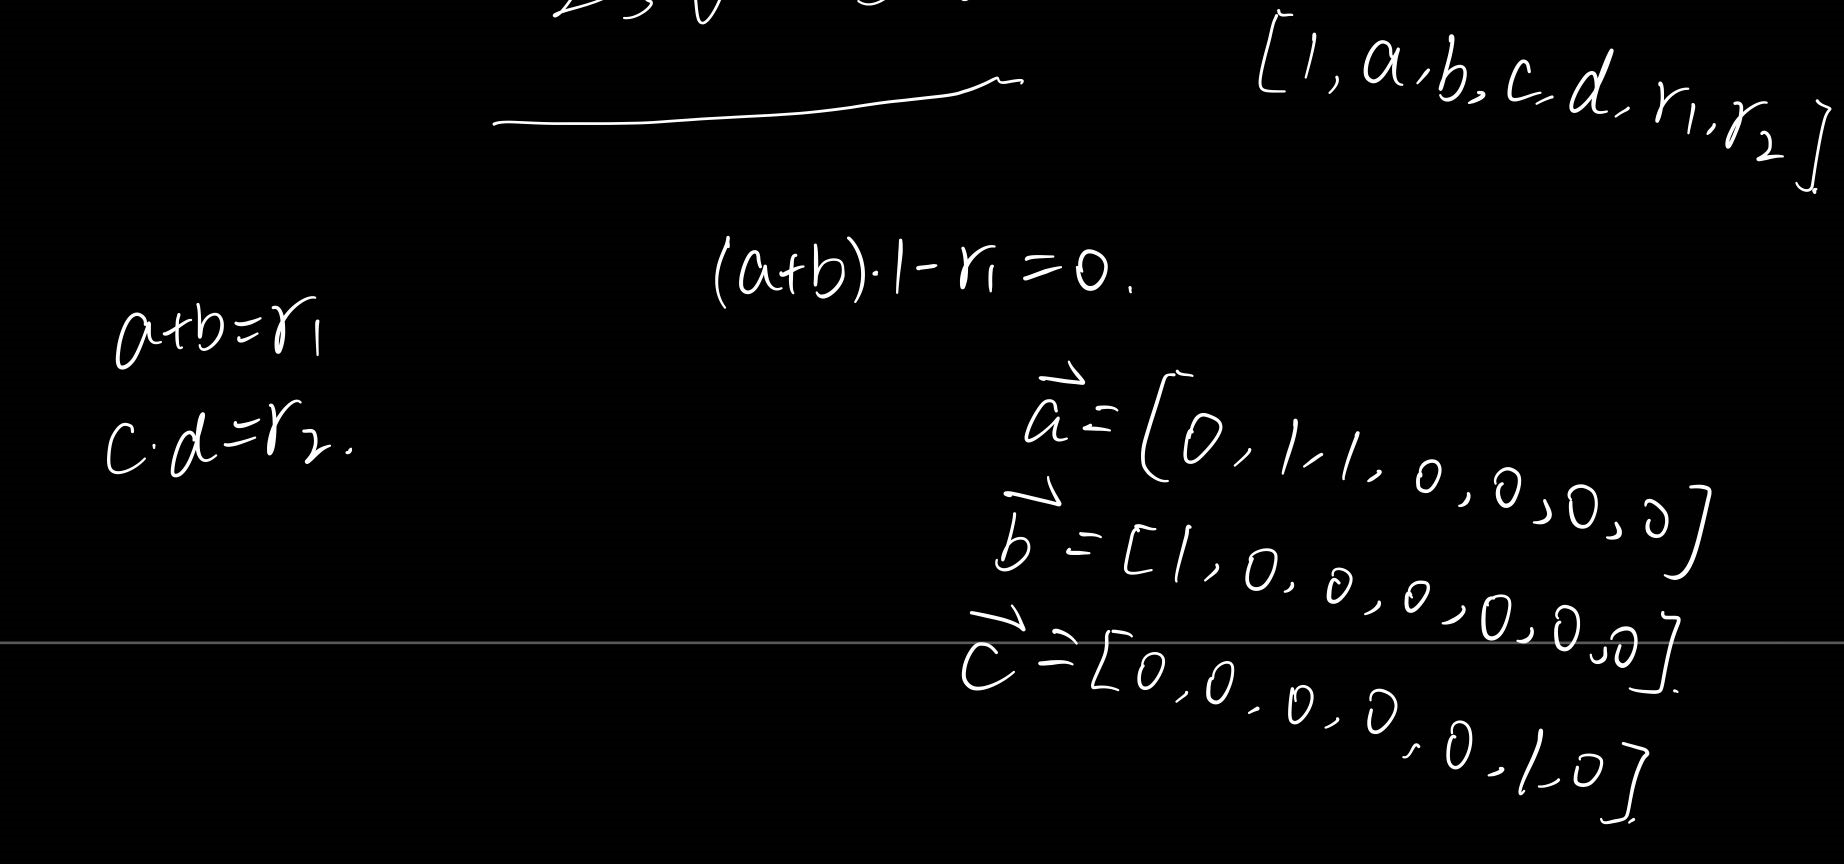 [1, a, b, c, d, r₁, r₂]
(a+b)·1-r₁=0.
a+b=r₁
c·d=r₂.
a⃗=[0,1,1,0,0,0,0]
b⃗=[1,0,0,0,0,0,0]
c⃗=[0,0,0,0,0,1,0]